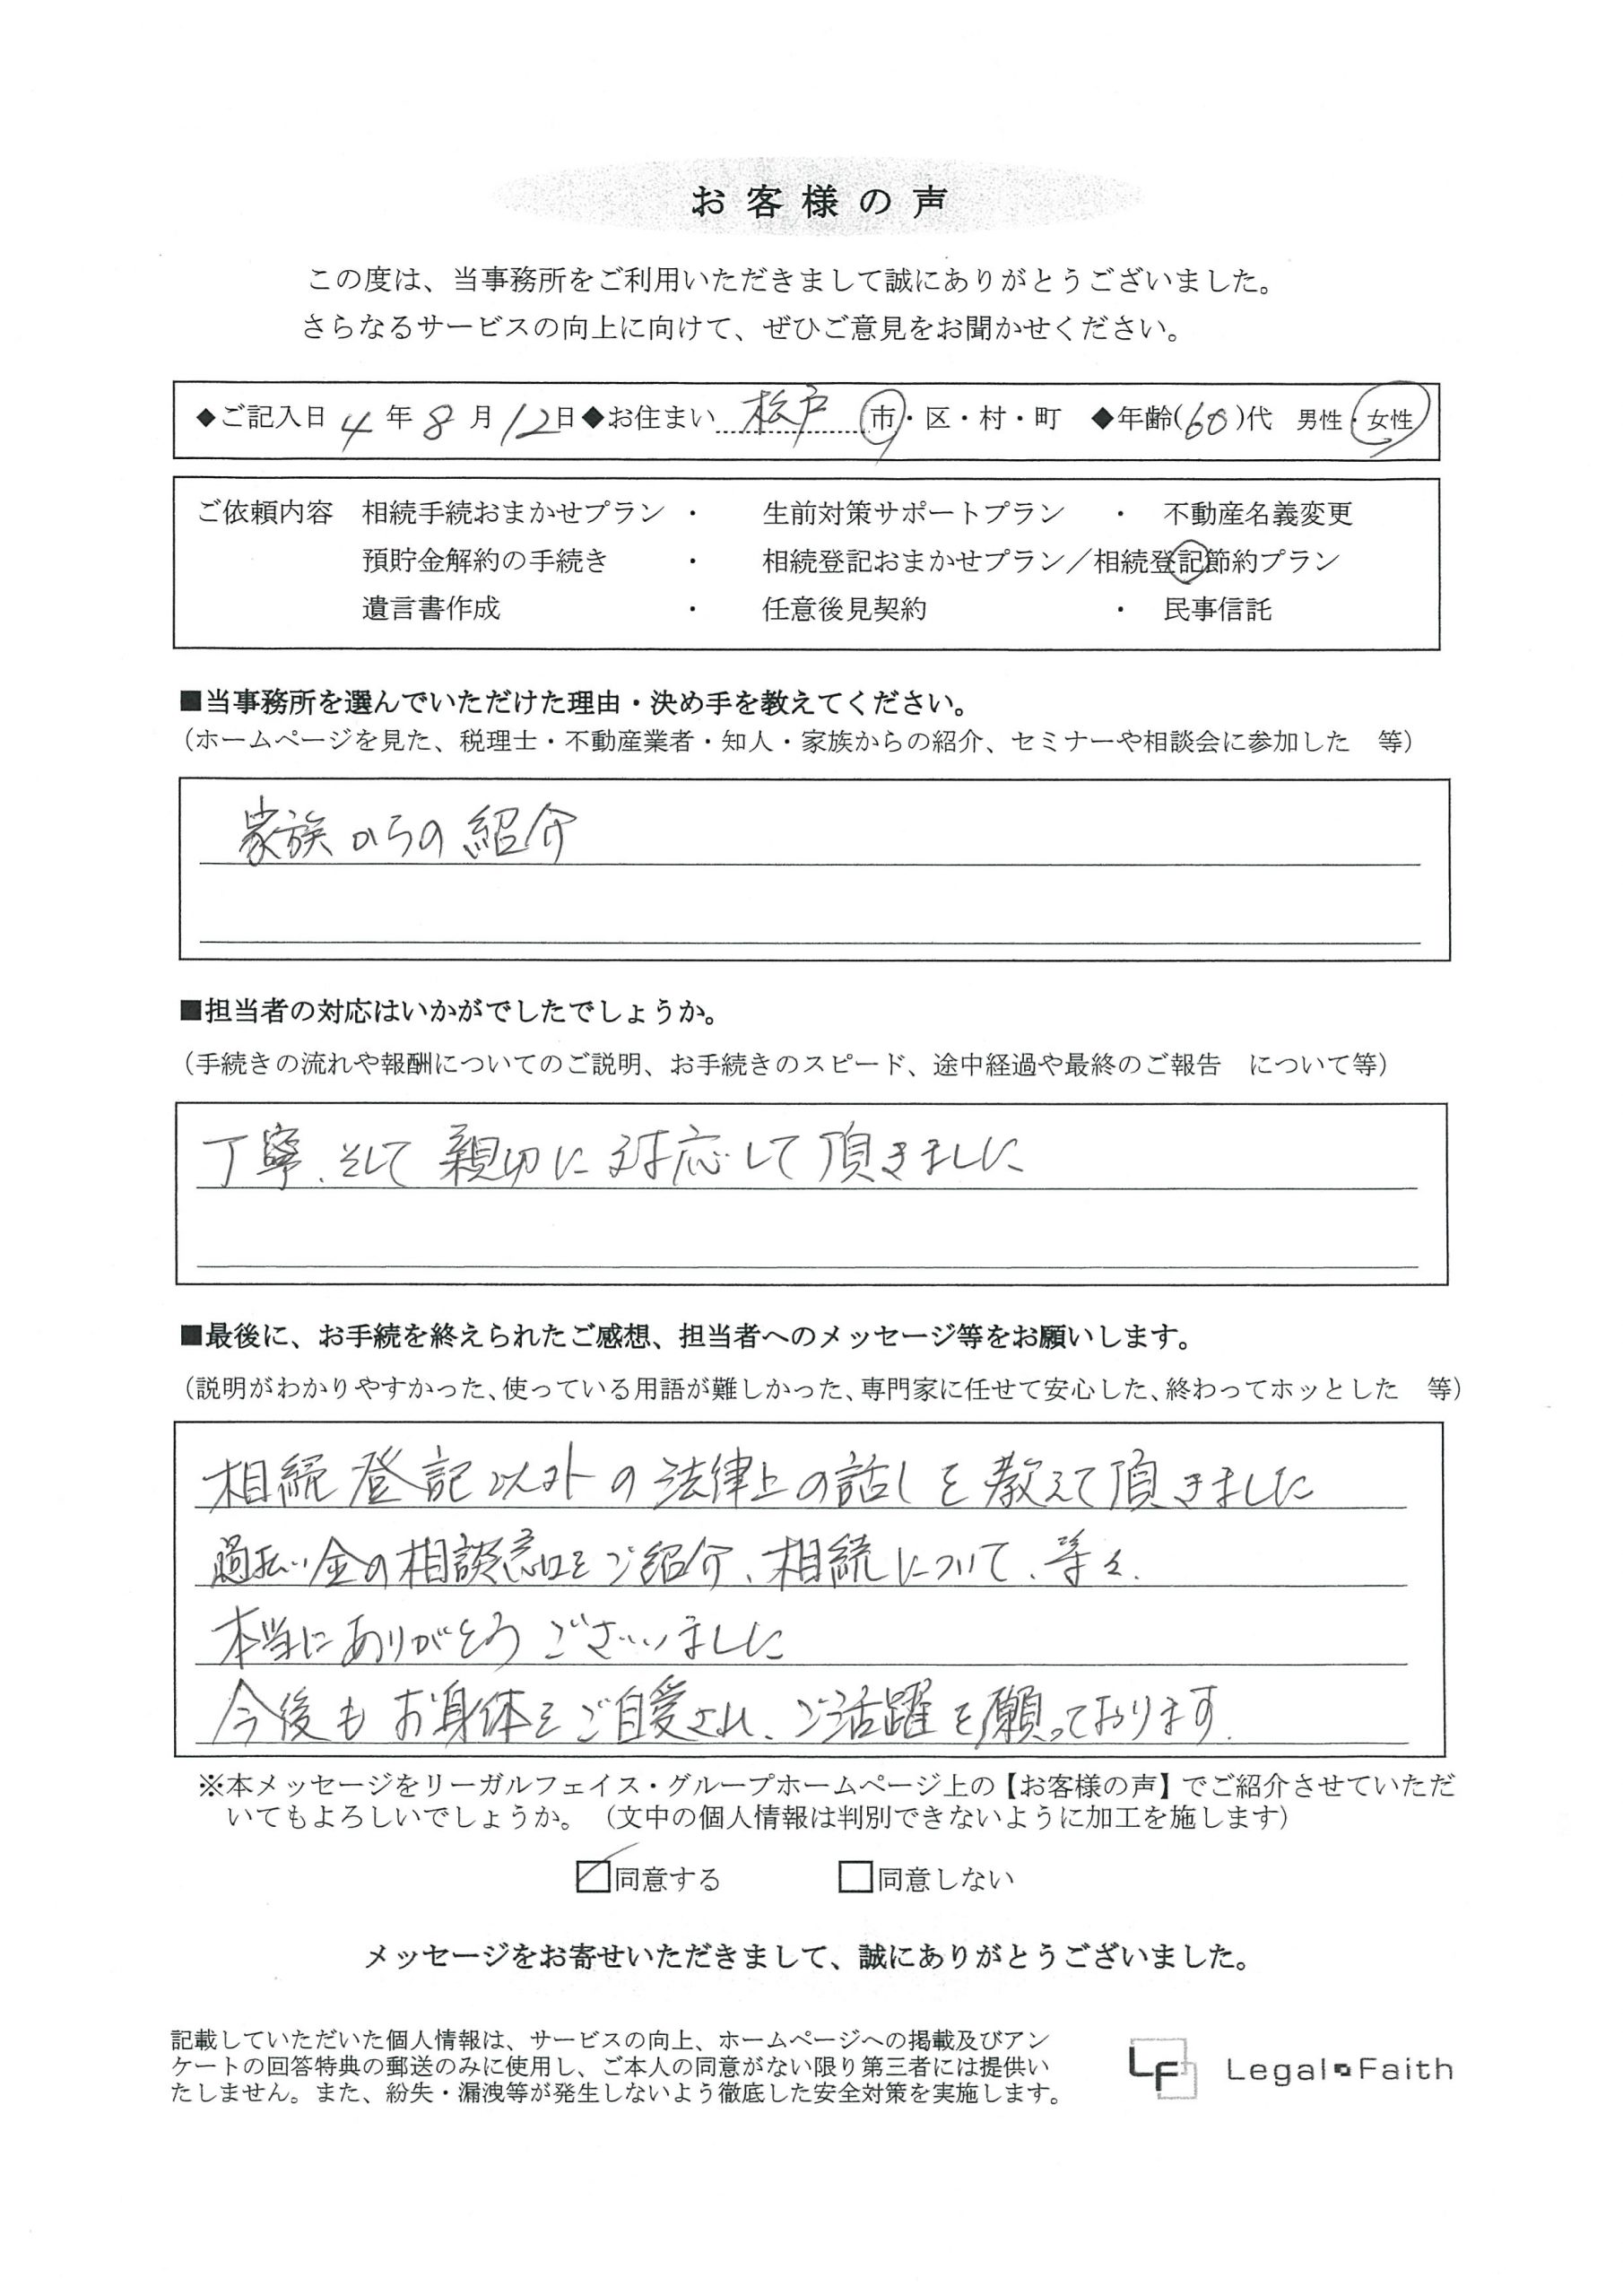 お客様の声
この度は、当事務所をご利用いただきまして誠にありがとうございました。
さらなるサービスの向上に向けて、ぜひご意見をお聞かせください。
◆ご記入日 4 年 8 月 12 日◆お住まい 松戸 市・区・村・町 ◆年齢(60)代 男性・女性
ご依頼内容 相続手続おまかせプラン ・ 生前対策サポートプラン ・ 不動産名義変更
預貯金解約の手続き ・ 相続登記おまかせプラン／相続登記節約プラン
遺言書作成 ・ 任意後見契約 ・ 民事信託
■当事務所を選んでいただけた理由・決め手を教えてください。
（ホームページを見た、税理士・不動産業者・知人・家族からの紹介、セミナーや相談会に参加した 等）
家族からの紹介
■担当者の対応はいかがでしたでしょうか。
（手続きの流れや報酬についてのご説明、お手続きのスピード、途中経過や最終のご報告 について等）
丁寧、そして親切に対応して頂きました
■最後に、お手続を終えられたご感想、担当者へのメッセージ等をお願いします。
（説明がわかりやすかった、使っている用語が難しかった、専門家に任せて安心した、終わってホッとした 等）
相続登記以外の法律上の話しを教えて頂きました
過払い金の相談窓口をご紹介、相続について、等々.
本当にありがとうございました
今後もお身体をご自愛され、ご活躍を願っております.
※本メッセージをリーガルフェイス・グループホームページ上の【お客様の声】でご紹介させていただ
いてもよろしいでしょうか。（文中の個人情報は判別できないように加工を施します）
☑同意する □同意しない
メッセージをお寄せいただきまして、誠にありがとうございました。
記載していただいた個人情報は、サービスの向上、ホームページへの掲載及びアン
ケートの回答特典の郵送のみに使用し、ご本人の同意がない限り第三者には提供い
たしません。また、紛失・漏洩等が発生しないよう徹底した安全対策を実施します。
LF Legal Faith